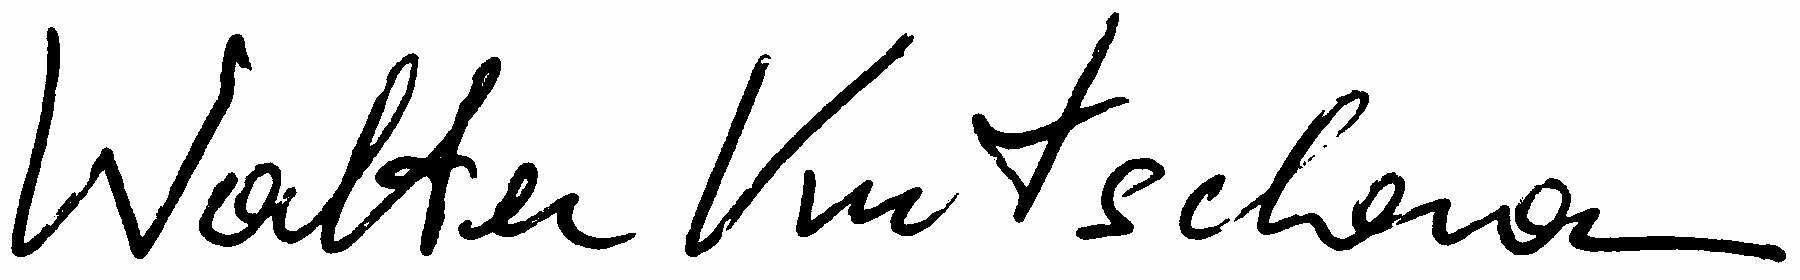 Walter Kutschera